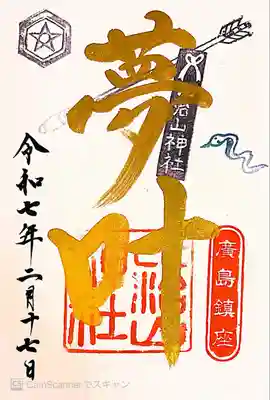 夢叶
治山神社
廣島鎮座
令和七年二月十七日
CamScanner でスキャン